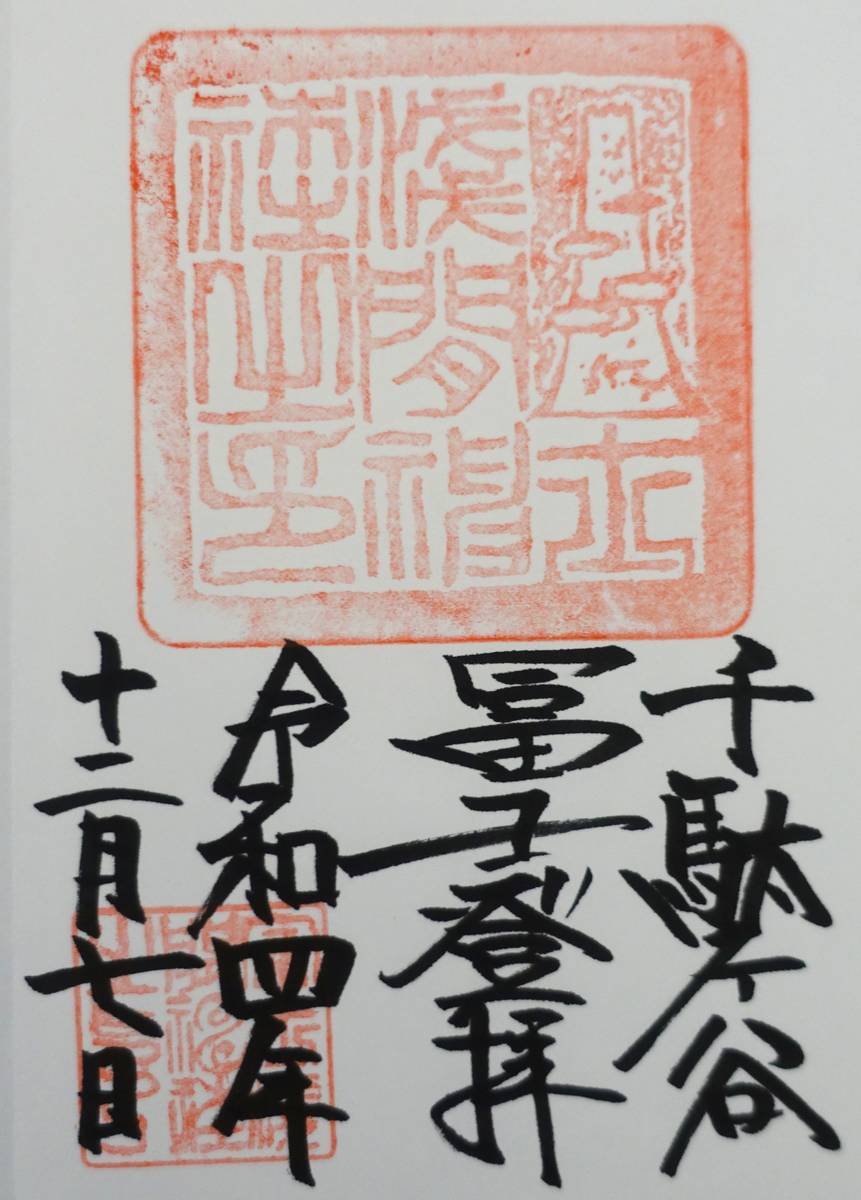 冨士
淺間神
社之印
千駄ヶ谷
冨士登拝
令和四年
十二月七日